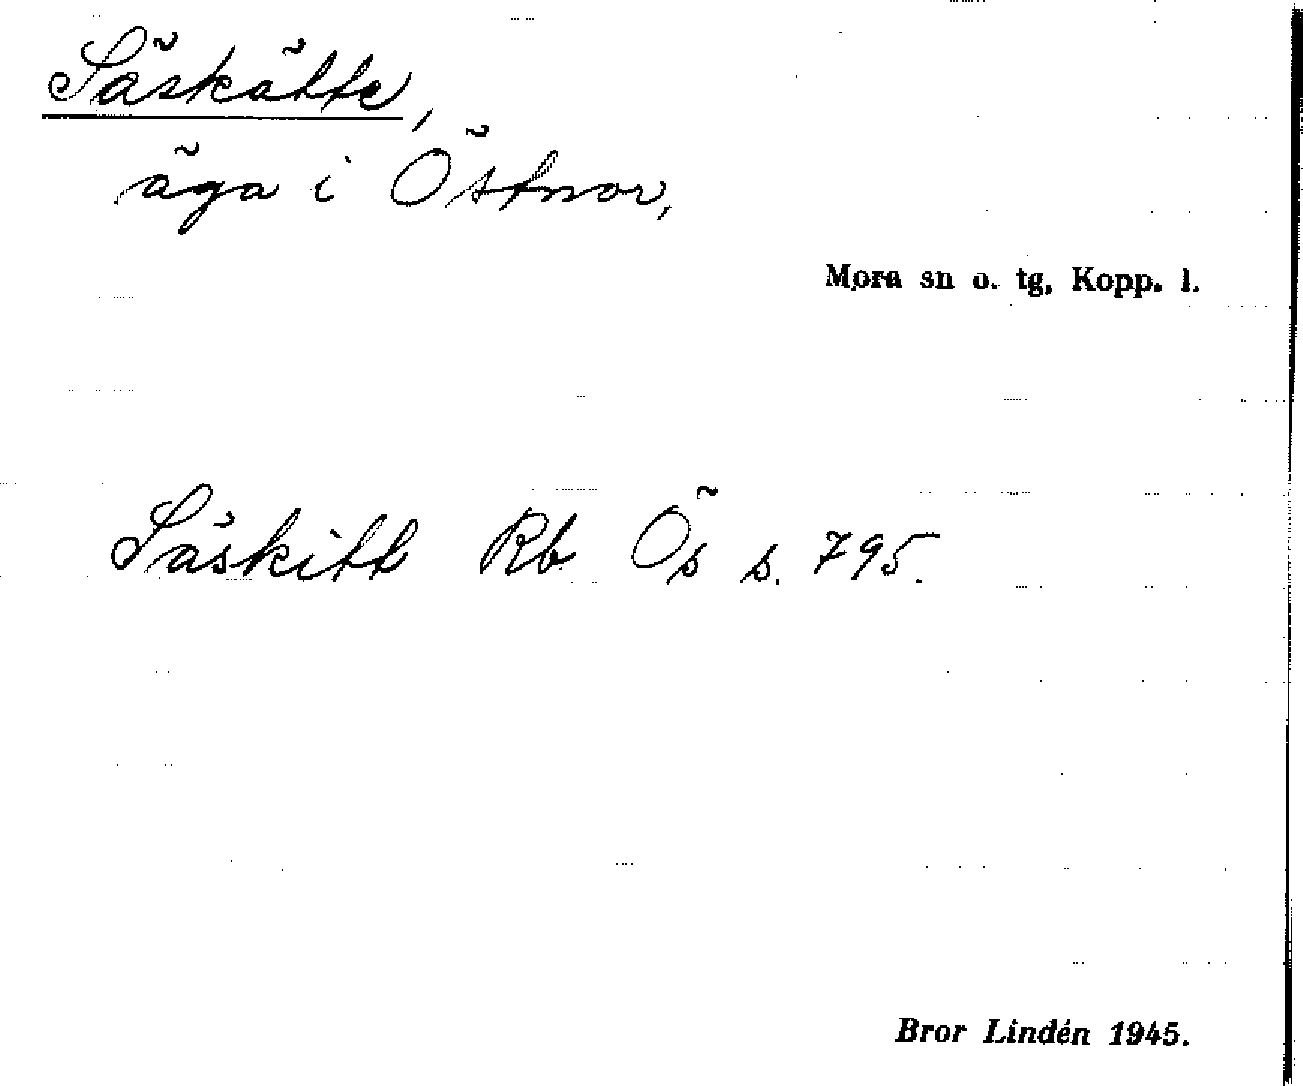 Säskätte,
äga i Östnor,
Mora sn o. tg, Kopp. l.
Säskitt Rb Ös s. 795.
Bror Lindén 1945.